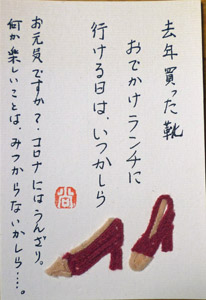 去年買った靴
おでかけランチに
行ける日は、いつかしら
お元気ですか?コロナにはうんざり。
何か楽しいことは、みつからないかしら……。